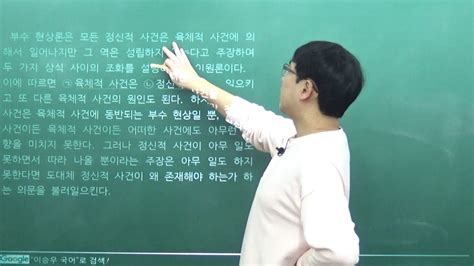 부수 현상론은 모든 정신적 사건은 육체적 사건에 의
해서 일어나지만 그 역은 성립하지 다고 주장하여
두 가지 상식 사이의 조화를 설명 이원론이다.
이에 따르면 ㉠육체적 사건은 ㉡정신 일으키
고 또 다른 육체적 사건의 원인도 된다. 하지
사건은 육체적 사건에 동반되는 부수 현상일 뿐,
사건이든 육체적 사건이든 어떠한 사건에도 아무런
향을 미치지 못한다. 그러나 정신적 사건이 아무 일도
못하면서 따라 나올 뿐이라는 주장은 아무 일도 하지
못한다면 도대체 정신적 사건이 왜 존재해야 하는가 하
는 의문을 불러일으킨다.
Google "이승우 국어"로 검색!